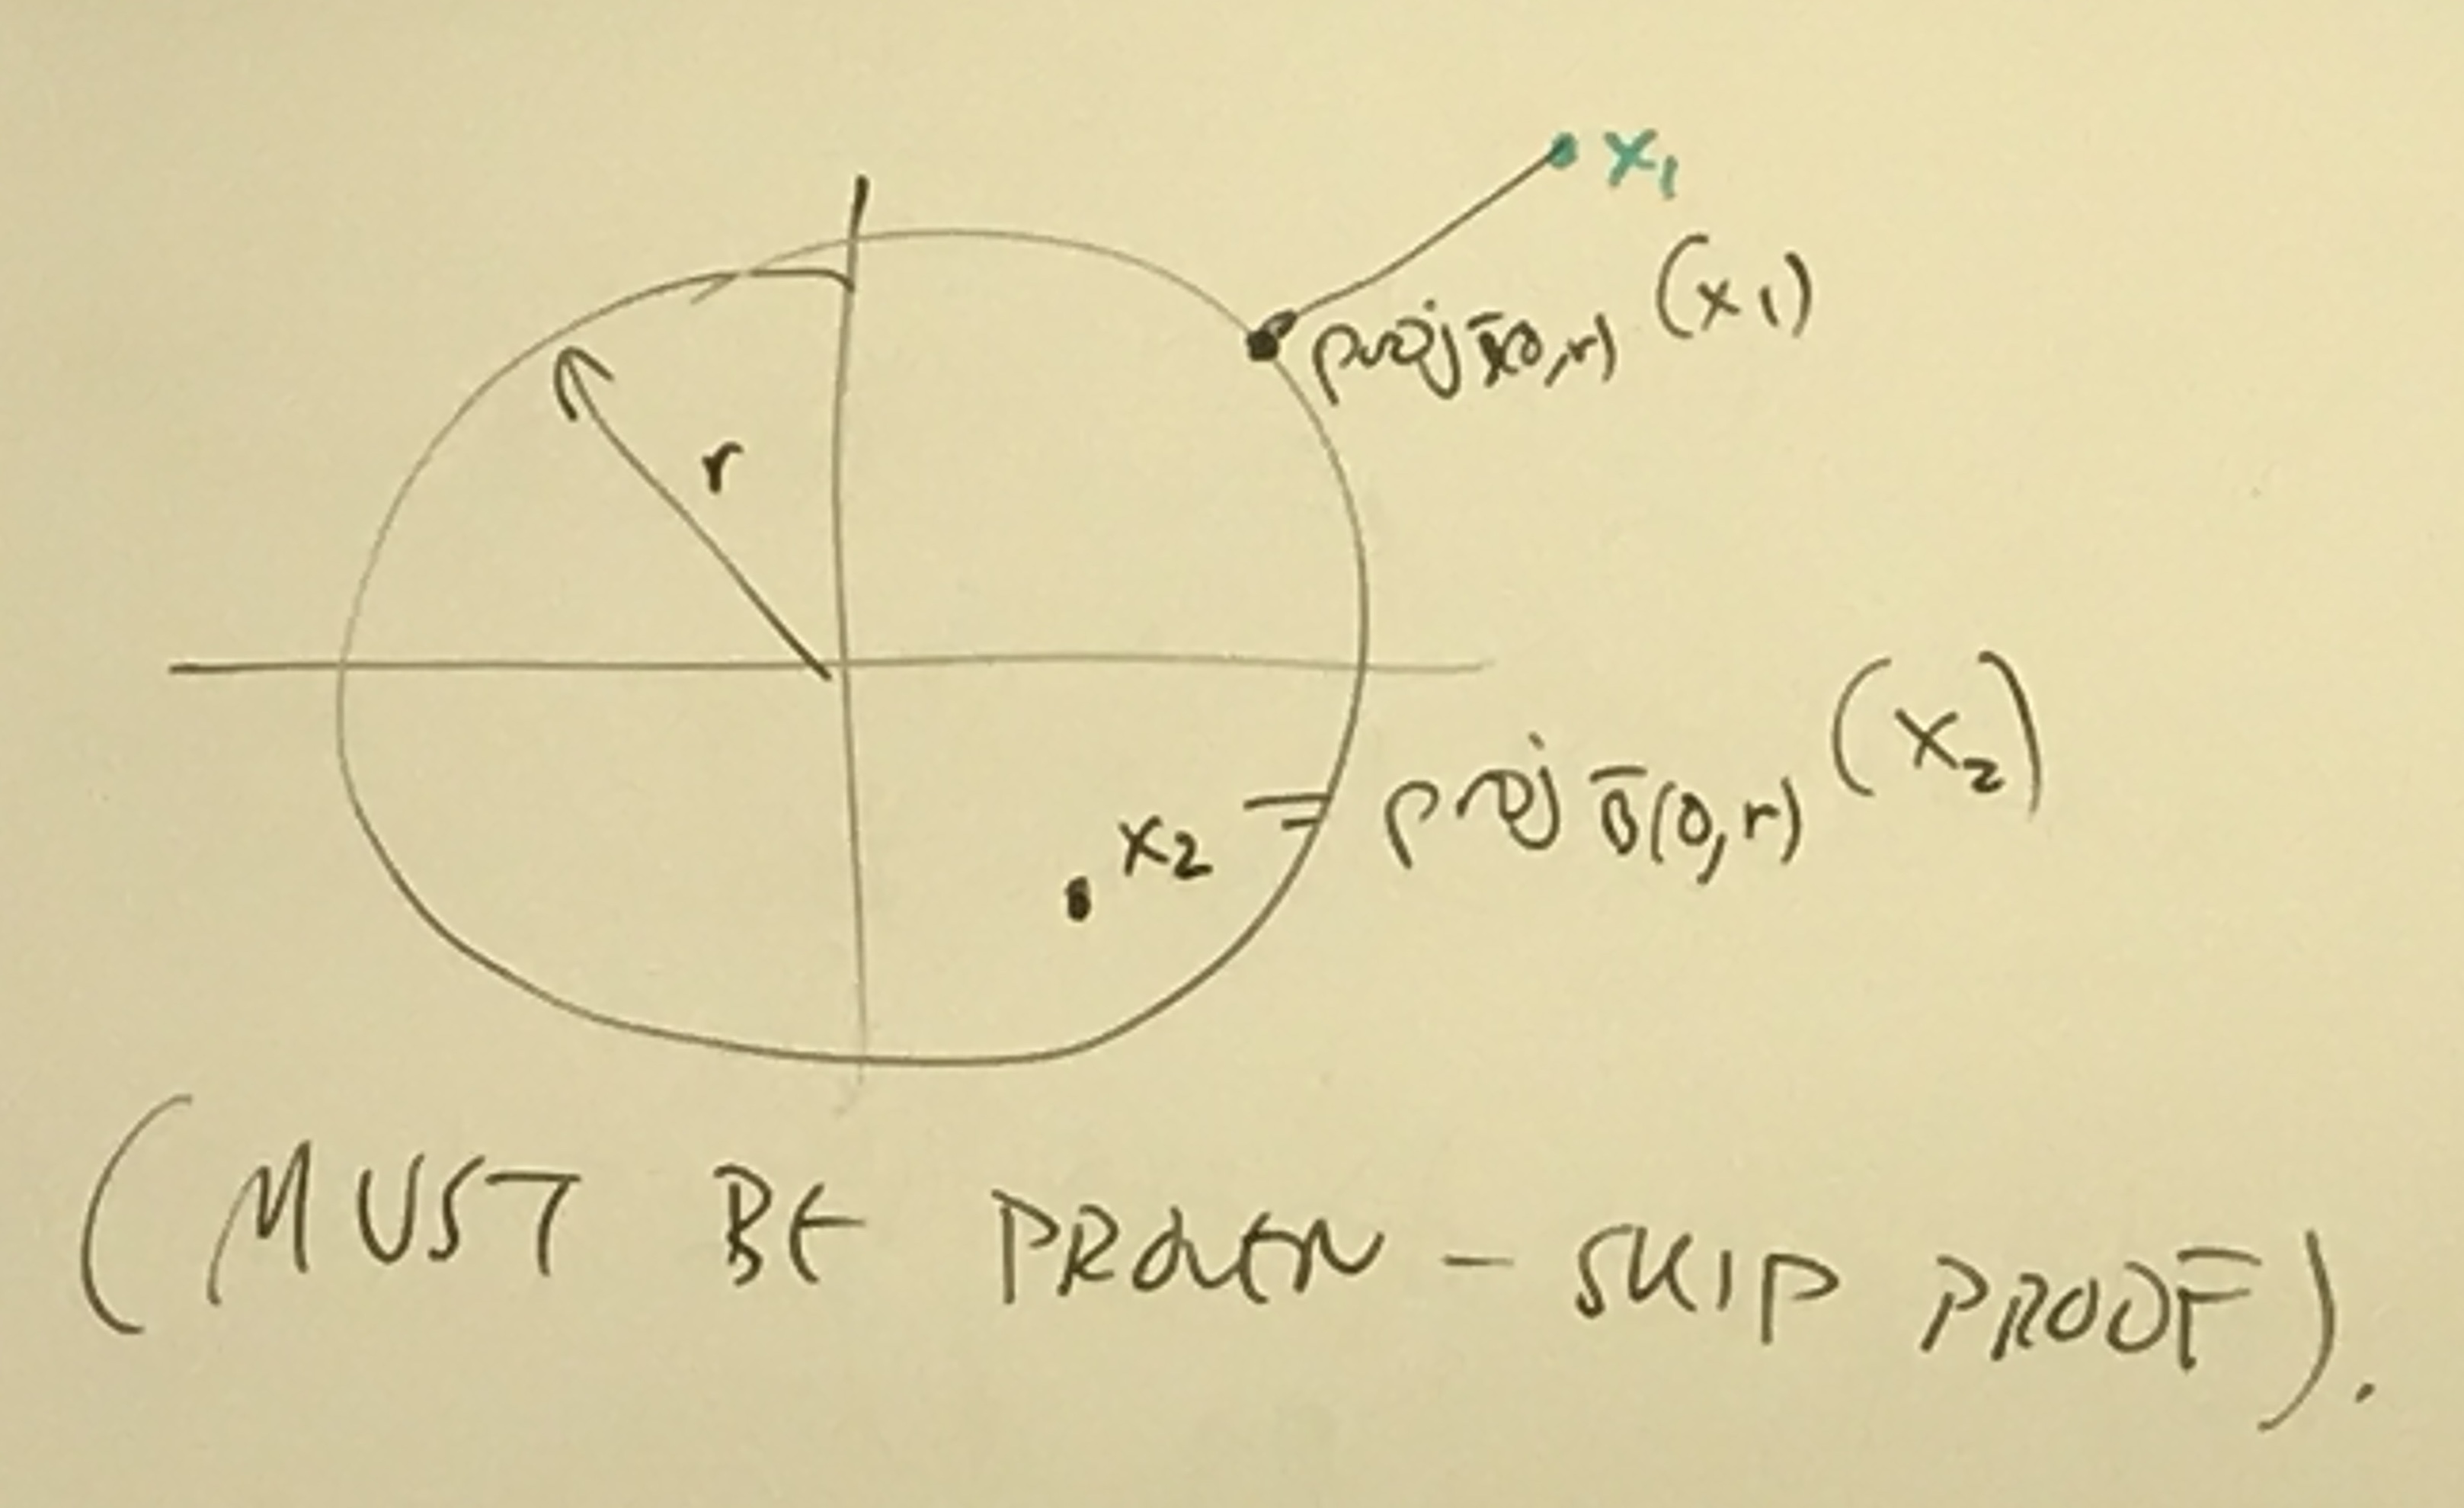 x₁
proj B̄(0,r) (x₁)
r
x₂ = proj B̄(0,r) (x₂)
(MUST BE PROVEN – SKIP PROOF).